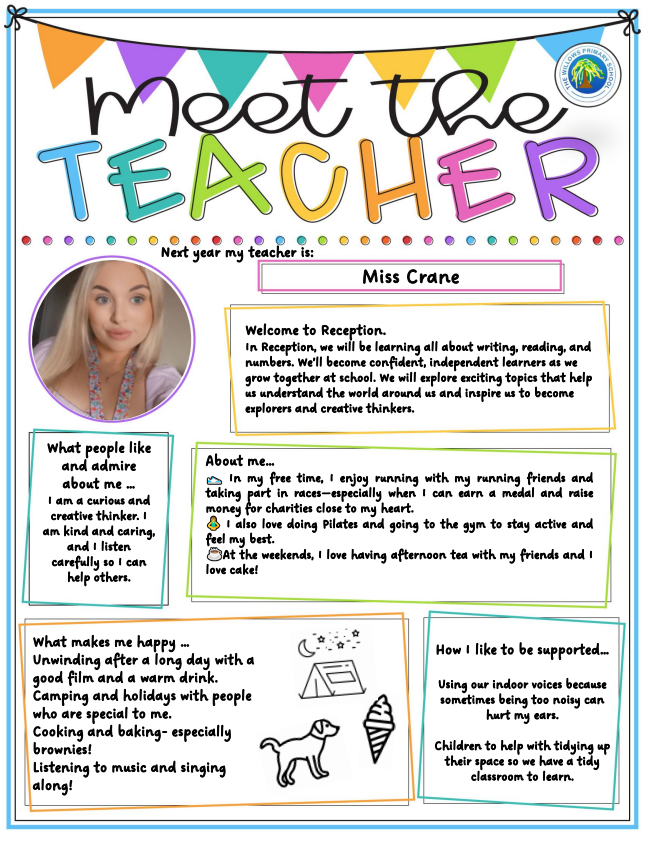 Meet the
TEACHER
THE WILLOWS PRIMARY SCHOOL
Next year my teacher is:
Miss Crane
Welcome to Reception.
In Reception, we will be learning all about writing, reading, and
numbers. We'll become confident, independent learners as we
grow together at school. We will explore exciting topics that help
us understand the world around us and inspire us to become
explorers and creative thinkers.
What people like
and admire
about me ...
I am a curious and
creative thinker. I
am kind and caring,
and I listen
carefully so I can
help others.
About me...
👟 In my free time, I enjoy running with my running friends and
taking part in races—especially when I can earn a medal and raise
money for charities close to my heart.
🧘 I also love doing Pilates and going to the gym to stay active and
feel my best.
☕At the weekends, I love having afternoon tea with my friends and I
love cake!
What makes me happy ...
Unwinding after a long day with a
good film and a warm drink.
Camping and holidays with people
who are special to me.
Cooking and baking- especially
brownies!
Listening to music and singing
along!
How I like to be supported...
Using our indoor voices because
sometimes being too noisy can
hurt my ears.
Children to help with tidying up
their space so we have a tidy
classroom to learn.